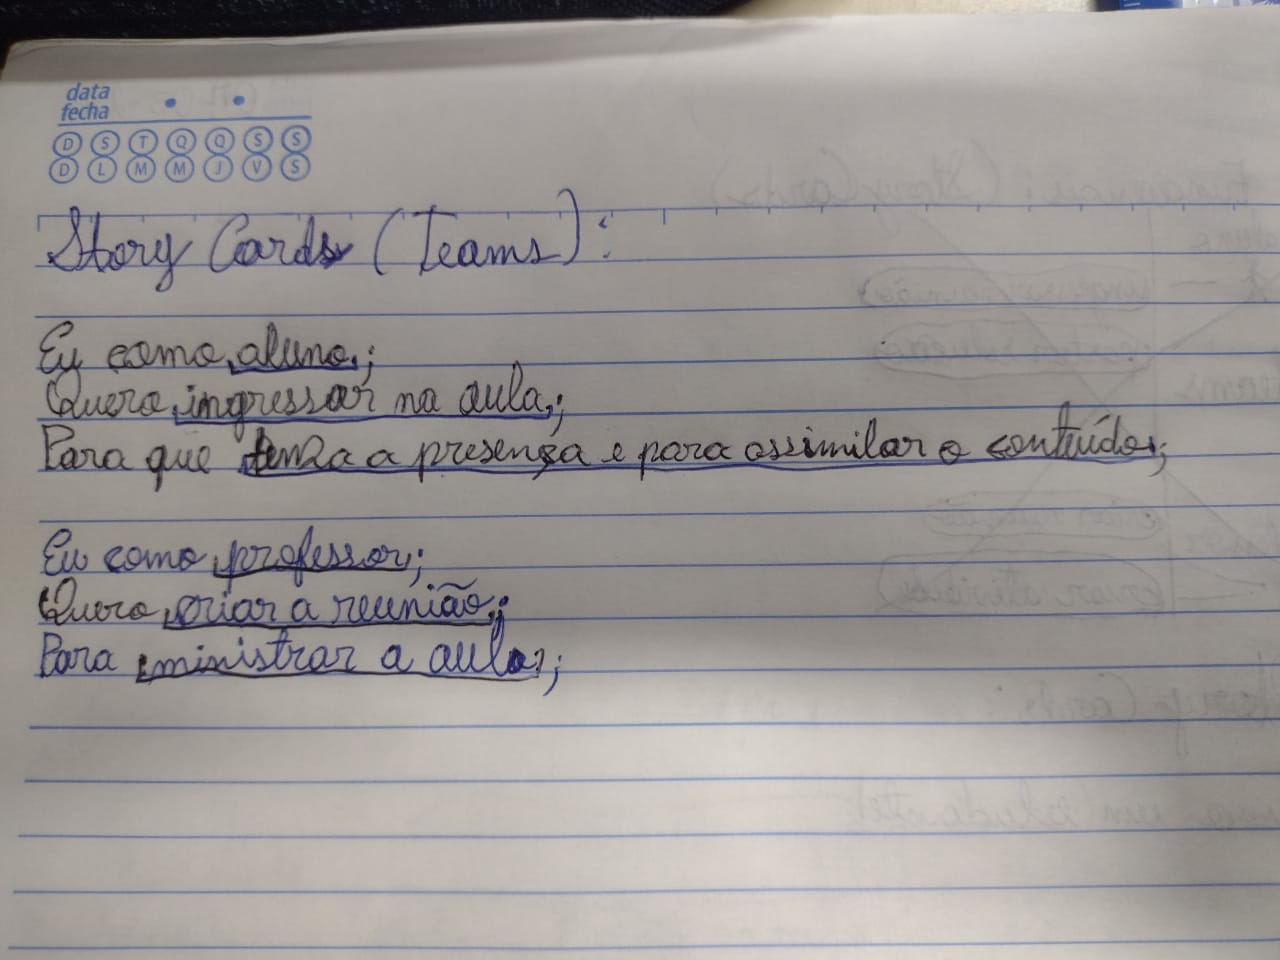 data
fecha
D S T Q Q S S
D L M M J V S
Story Cards (Teams):
Eu como aluno;
Quero ingressar na aula;
Para que tenha a presença e para assimilar o conteúdo;
Eu como professor;
Quero criar a reunião;
Para ministrar a aula;